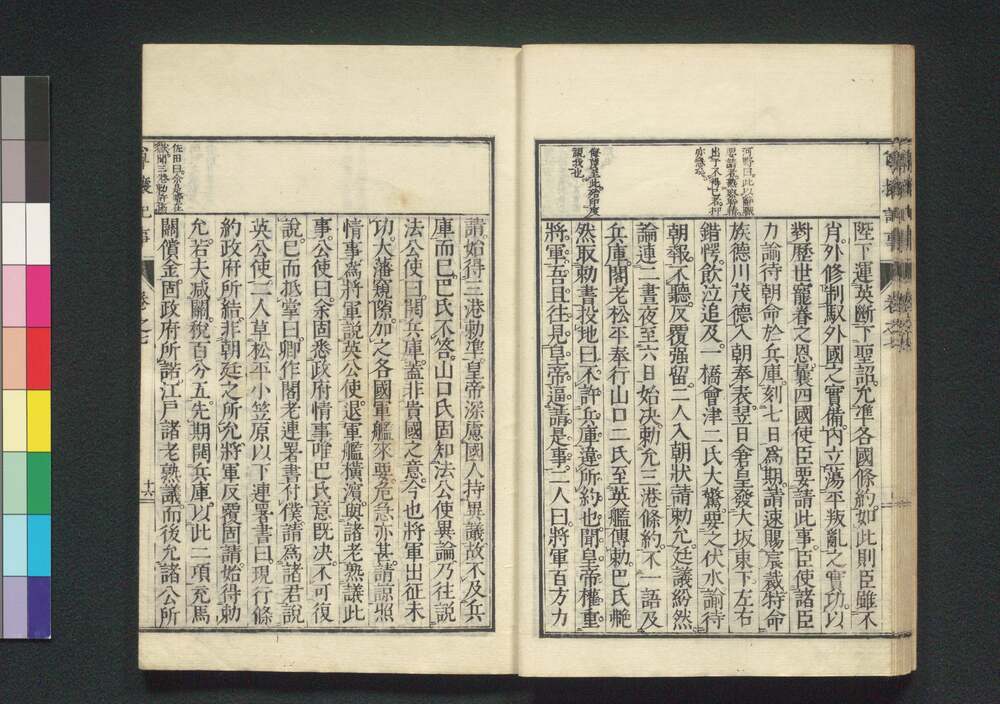 陛下運英斷下聖詔允準各國條約如此則臣雖不
肖外修制馭外國之實備内立蕩平叛亂之實功以
對歷世寵眷之恩曩四國使臣要請此事臣使諸臣
力諭待朝命於兵庫刻七日為期請速賜宸裁特命
族德川茂德入朝奉表翌日倉皇發大坂東下左右
錯愕飲泣追及一橋會津二氏大驚要之伏水諭待
朝報不聽反覆强留二人入朝狀請勅允廷議紛然
論連二晝夜至六日始决勅允三港條約不一語及
兵庫閣老松平奉行山口二氏至英艦傳勅巴氏艴
然取勅書投地曰不許兵庫違所約也聞皇帝權重
將軍吾且往見皇帝逼請是事二人曰將軍百方力
請始得三港勅準皇帝深慮國人持異議故不及兵
庫而已巴氏不答山口氏固知法公使異論乃往説
法公使曰開兵庫蓋非貴國之意今也將軍出征未
功大藩窺隙加之各國軍艦來要危急亦甚請諒照
情事為將軍説英公使退軍艦横濱與諸老熟議此
事公使曰余固悉政府情事唯巴氏意既决不可復
説已而抵掌曰卿作閣老連署書付僕請為諸君説
英公使二人草松平小笠原以下連署書曰現行條
約政府所結非朝廷之所允將軍反覆固請始得勅
允若夫減關税百分五先期開兵庫以此二項充馬
關償金固政府所諾江戸諸老熟議而後允諸公所
卷之七
十六